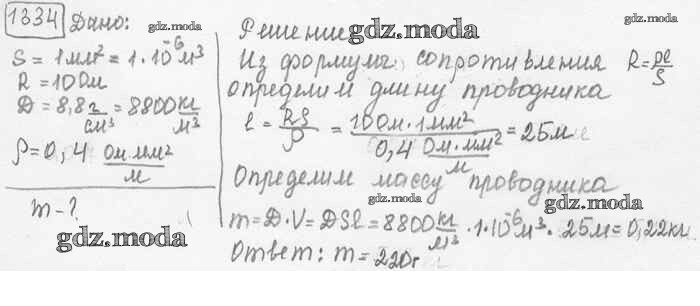 1334 Дано:
gdz.moda
S = 1мм² = 1·10⁻⁶м³
R = 10Ом
D = 8,8 г/см³ = 8800 кг/м³
ρ = 0,4 Ом·мм²/м
m - ?
gdz.moda
Решение
gdz.moda
Из формулы сопротивления R = ρℓ/S
определим длину проводника
ℓ = RS/ρ = 10Ом·1мм² / 0,4 Ом·мм²/м = 25м
Определим массу проводника
gdz.moda
gdz.moda
m = D·V = DSℓ = 8800 кг/м³ · 1·10⁻⁶м³ · 25м = 0,22кг
Ответ: m = 220г
gdz.moda